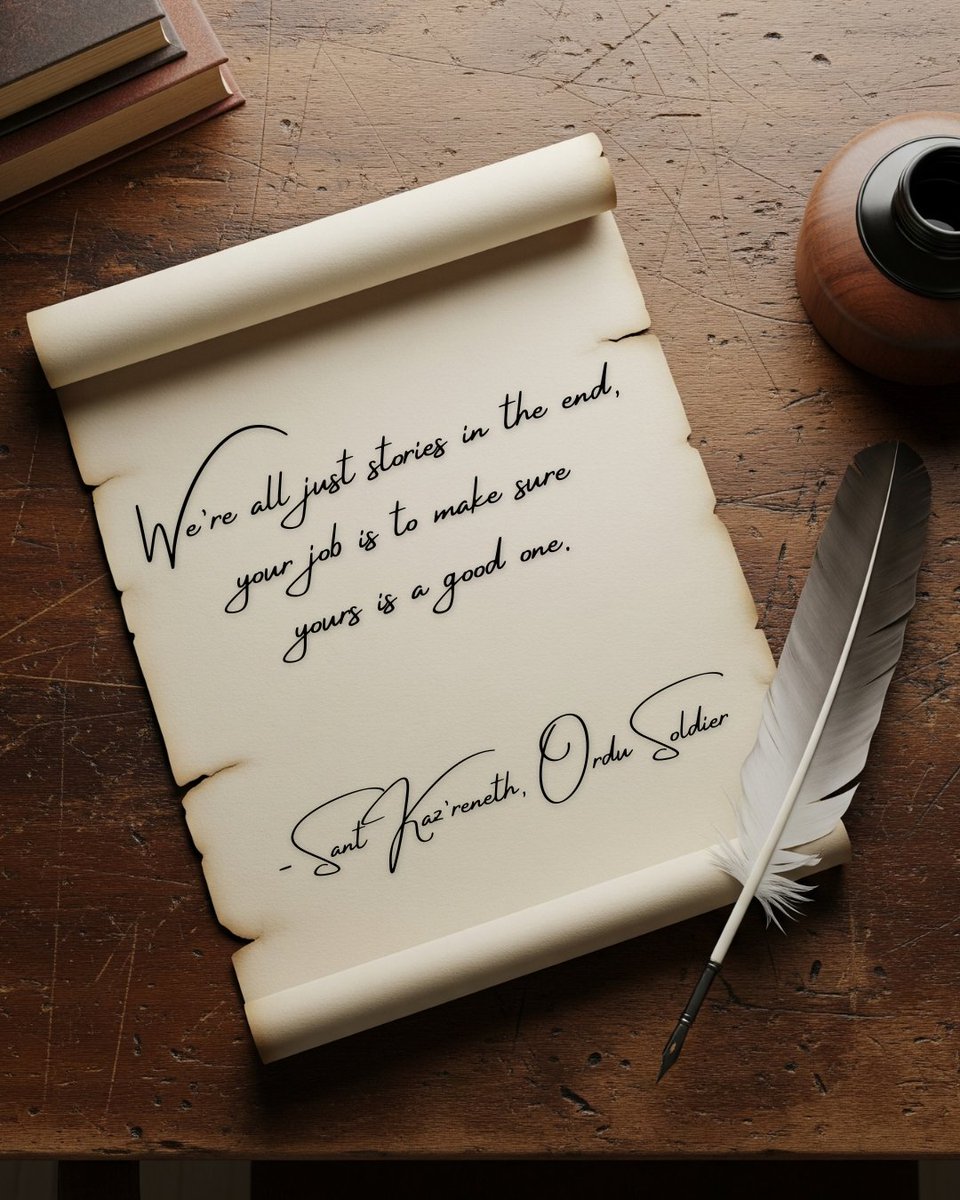 We're all just stories in the end,
your job is to make sure
yours is a good one.
- Sant Kaz'reneth, Ordu Soldier